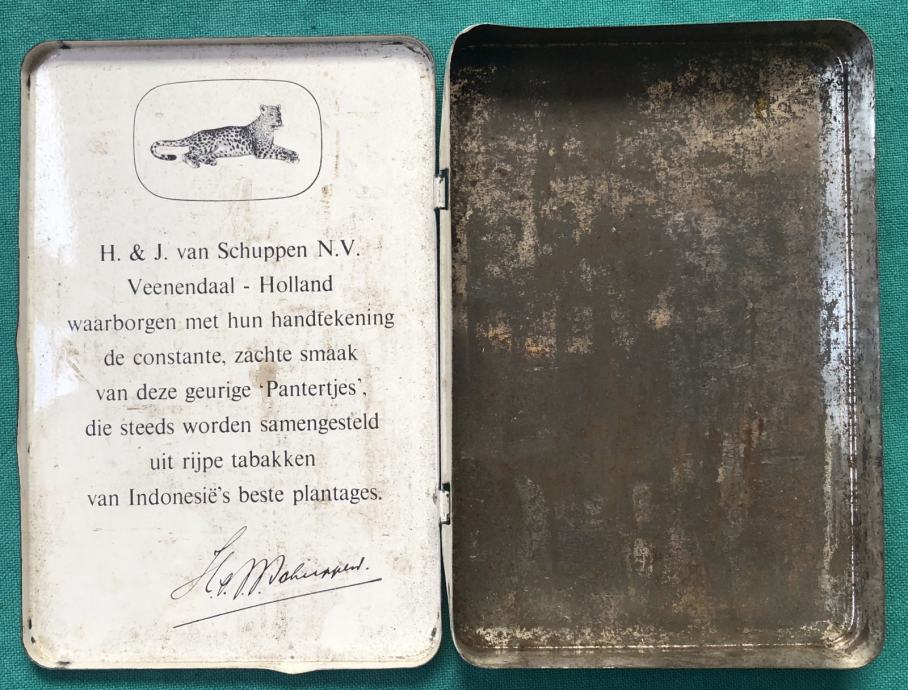 H. & J. van Schuppen N.V.
Veenendaal - Holland
waarborgen met hun handtekening
de constante, zachte smaak
van deze geurige ‘Pantertjes’,
die steeds worden samengesteld
uit rijpe tabakken
van Indonesië's beste plantages.